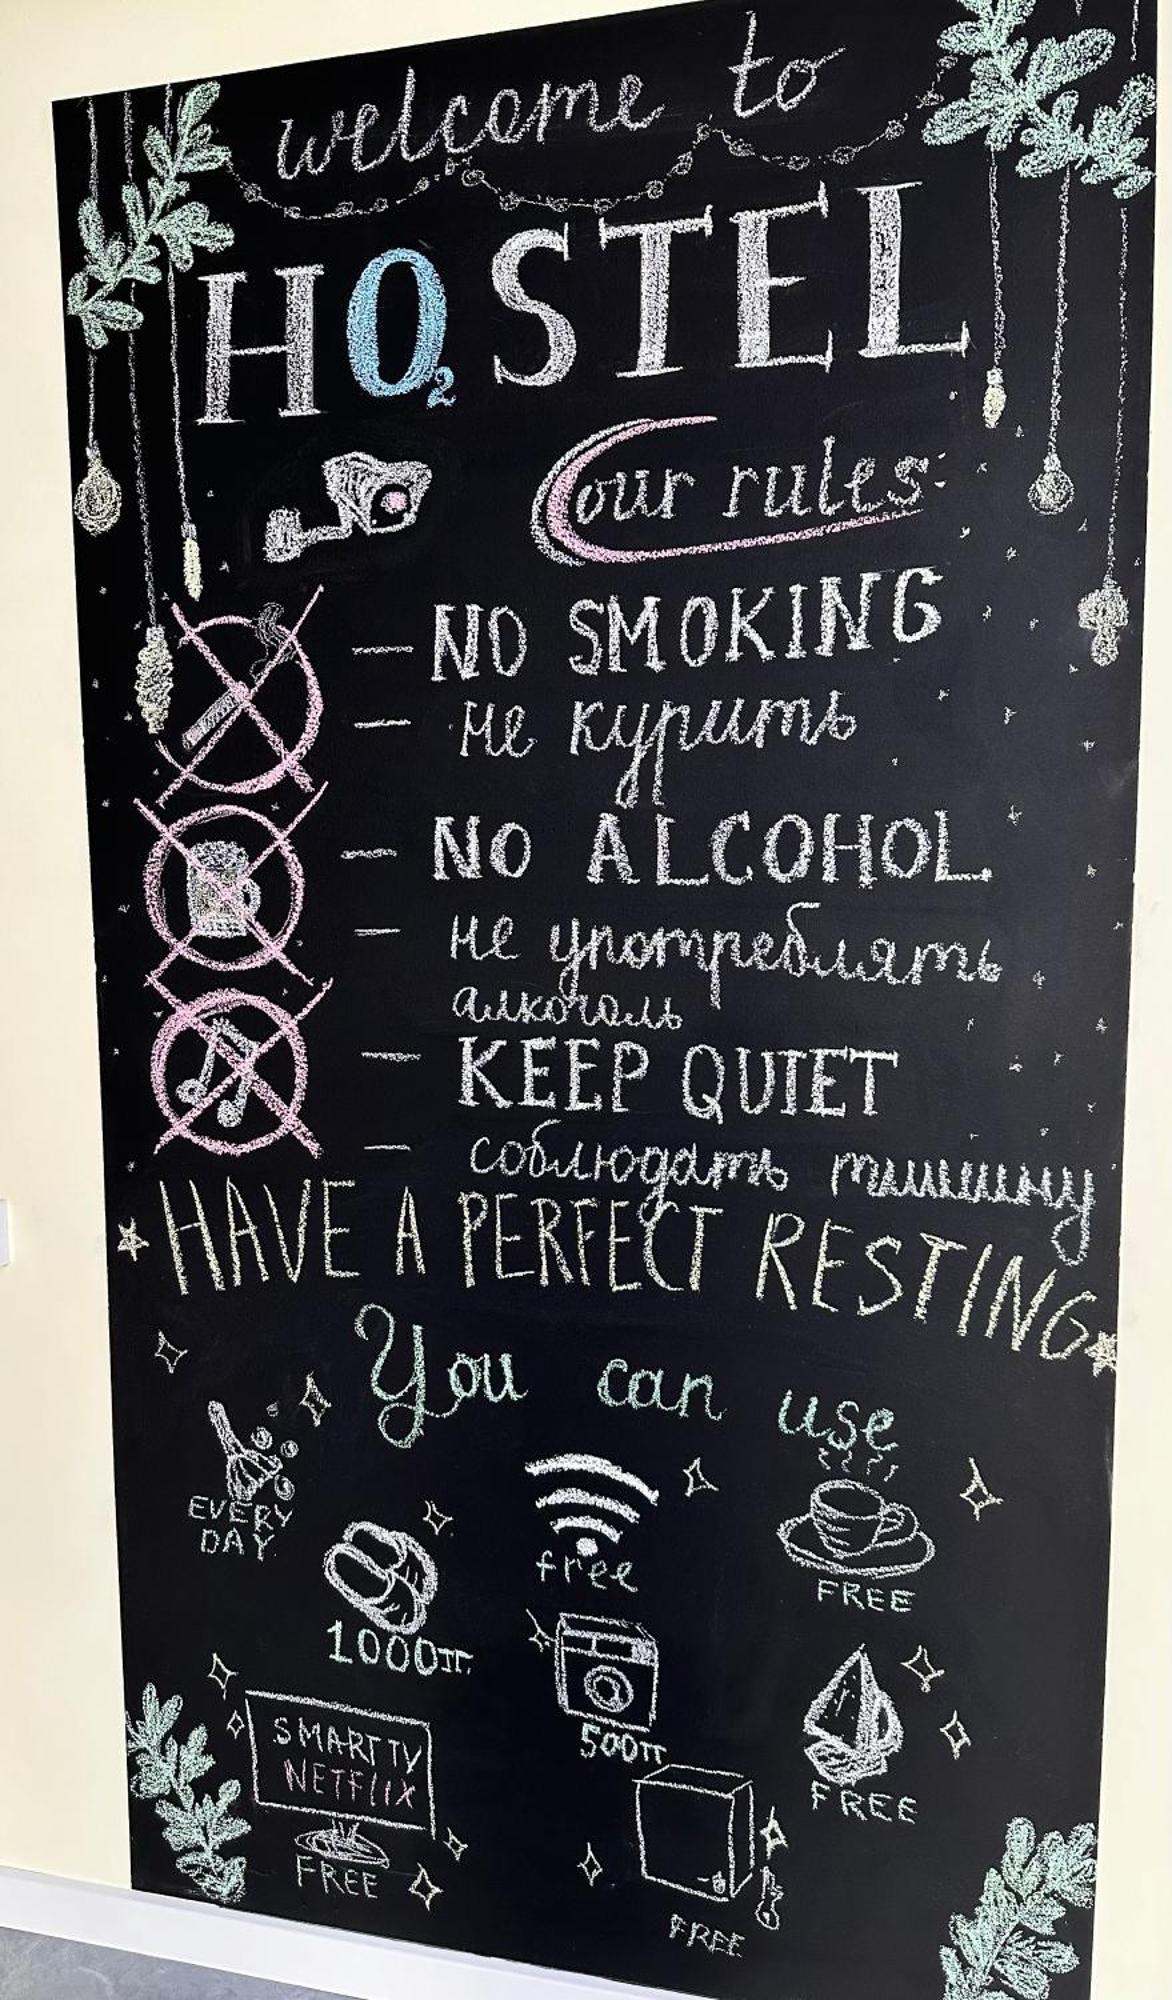 welcome to
HO₂STEL
our rules:
— NO SMOKING
— не курить
— NO ALCOHOL
— не употреблять
алкоголь
— KEEP QUIET
— соблюдать тишину
HAVE A PERFECT RESTING
You can use
EVERY
DAY
free
FREE
1000тг.
500тг
FREE
SMART TV
NETFLIX
FREE
FREE